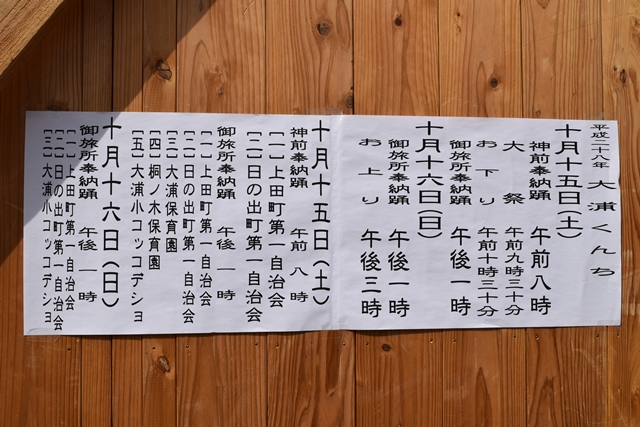 平成二十八年 大浦くんち
十月十五日(土)
神前奉納踊 午前八時
大祭 午前九時三十分
お下り 午前十時三十分
御旅所奉納踊 午後一時
十月十六日(日)
御旅所奉納踊 午後一時
お上り 午後三時
十月十五日(土)
神前奉納踊 午前八時
[一]上田町第一自治会
[二]日の出町第一自治会
御旅所奉納踊 午後一時
[一]上田町第一自治会
[二]日の出町第一自治会
[三]大浦保育園
[四]桐ノ木保育園
[五]大浦小コッコデショ
十月十六日(日)
御旅所奉納踊 午後一時
[一]上田町第一自治会
[二]日の出町第一自治会
[三]大浦小コッコデショ